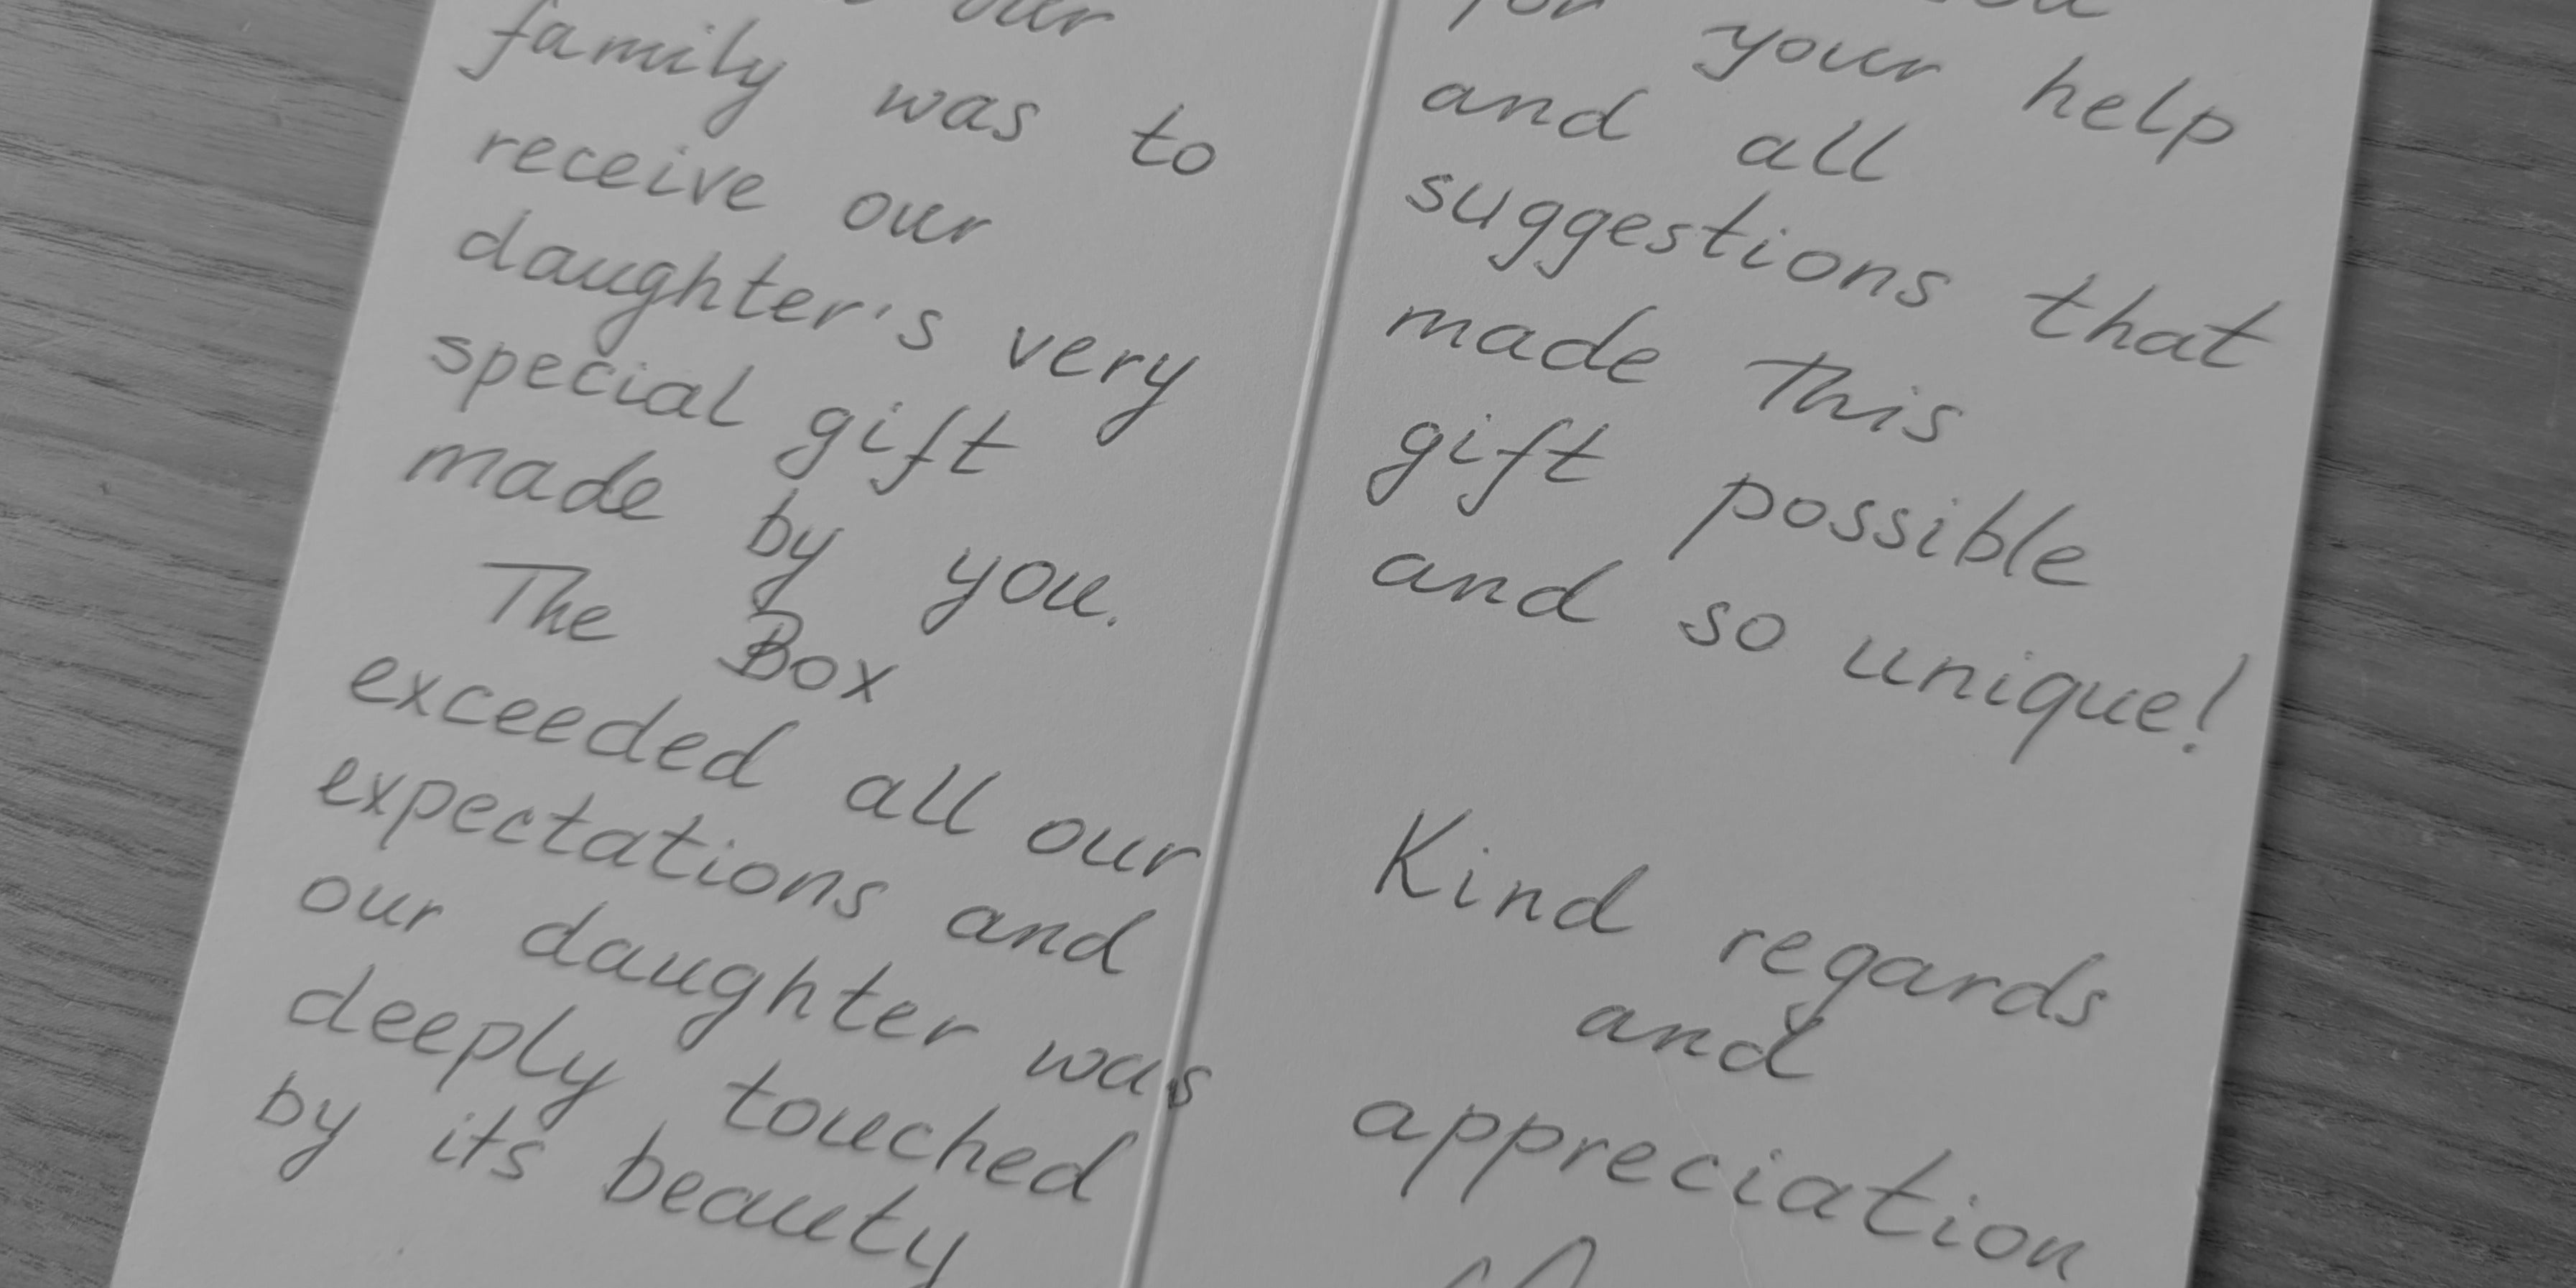 our
family was to
receive our
daughter's very
special gift
made by you.
The Box
exceeded all our
expectations and
our daughter was
deeply touched
by its beauty
for your help
and all
suggestions that
made This
gift possible
and so unique!
Kind regards
and
appreciation